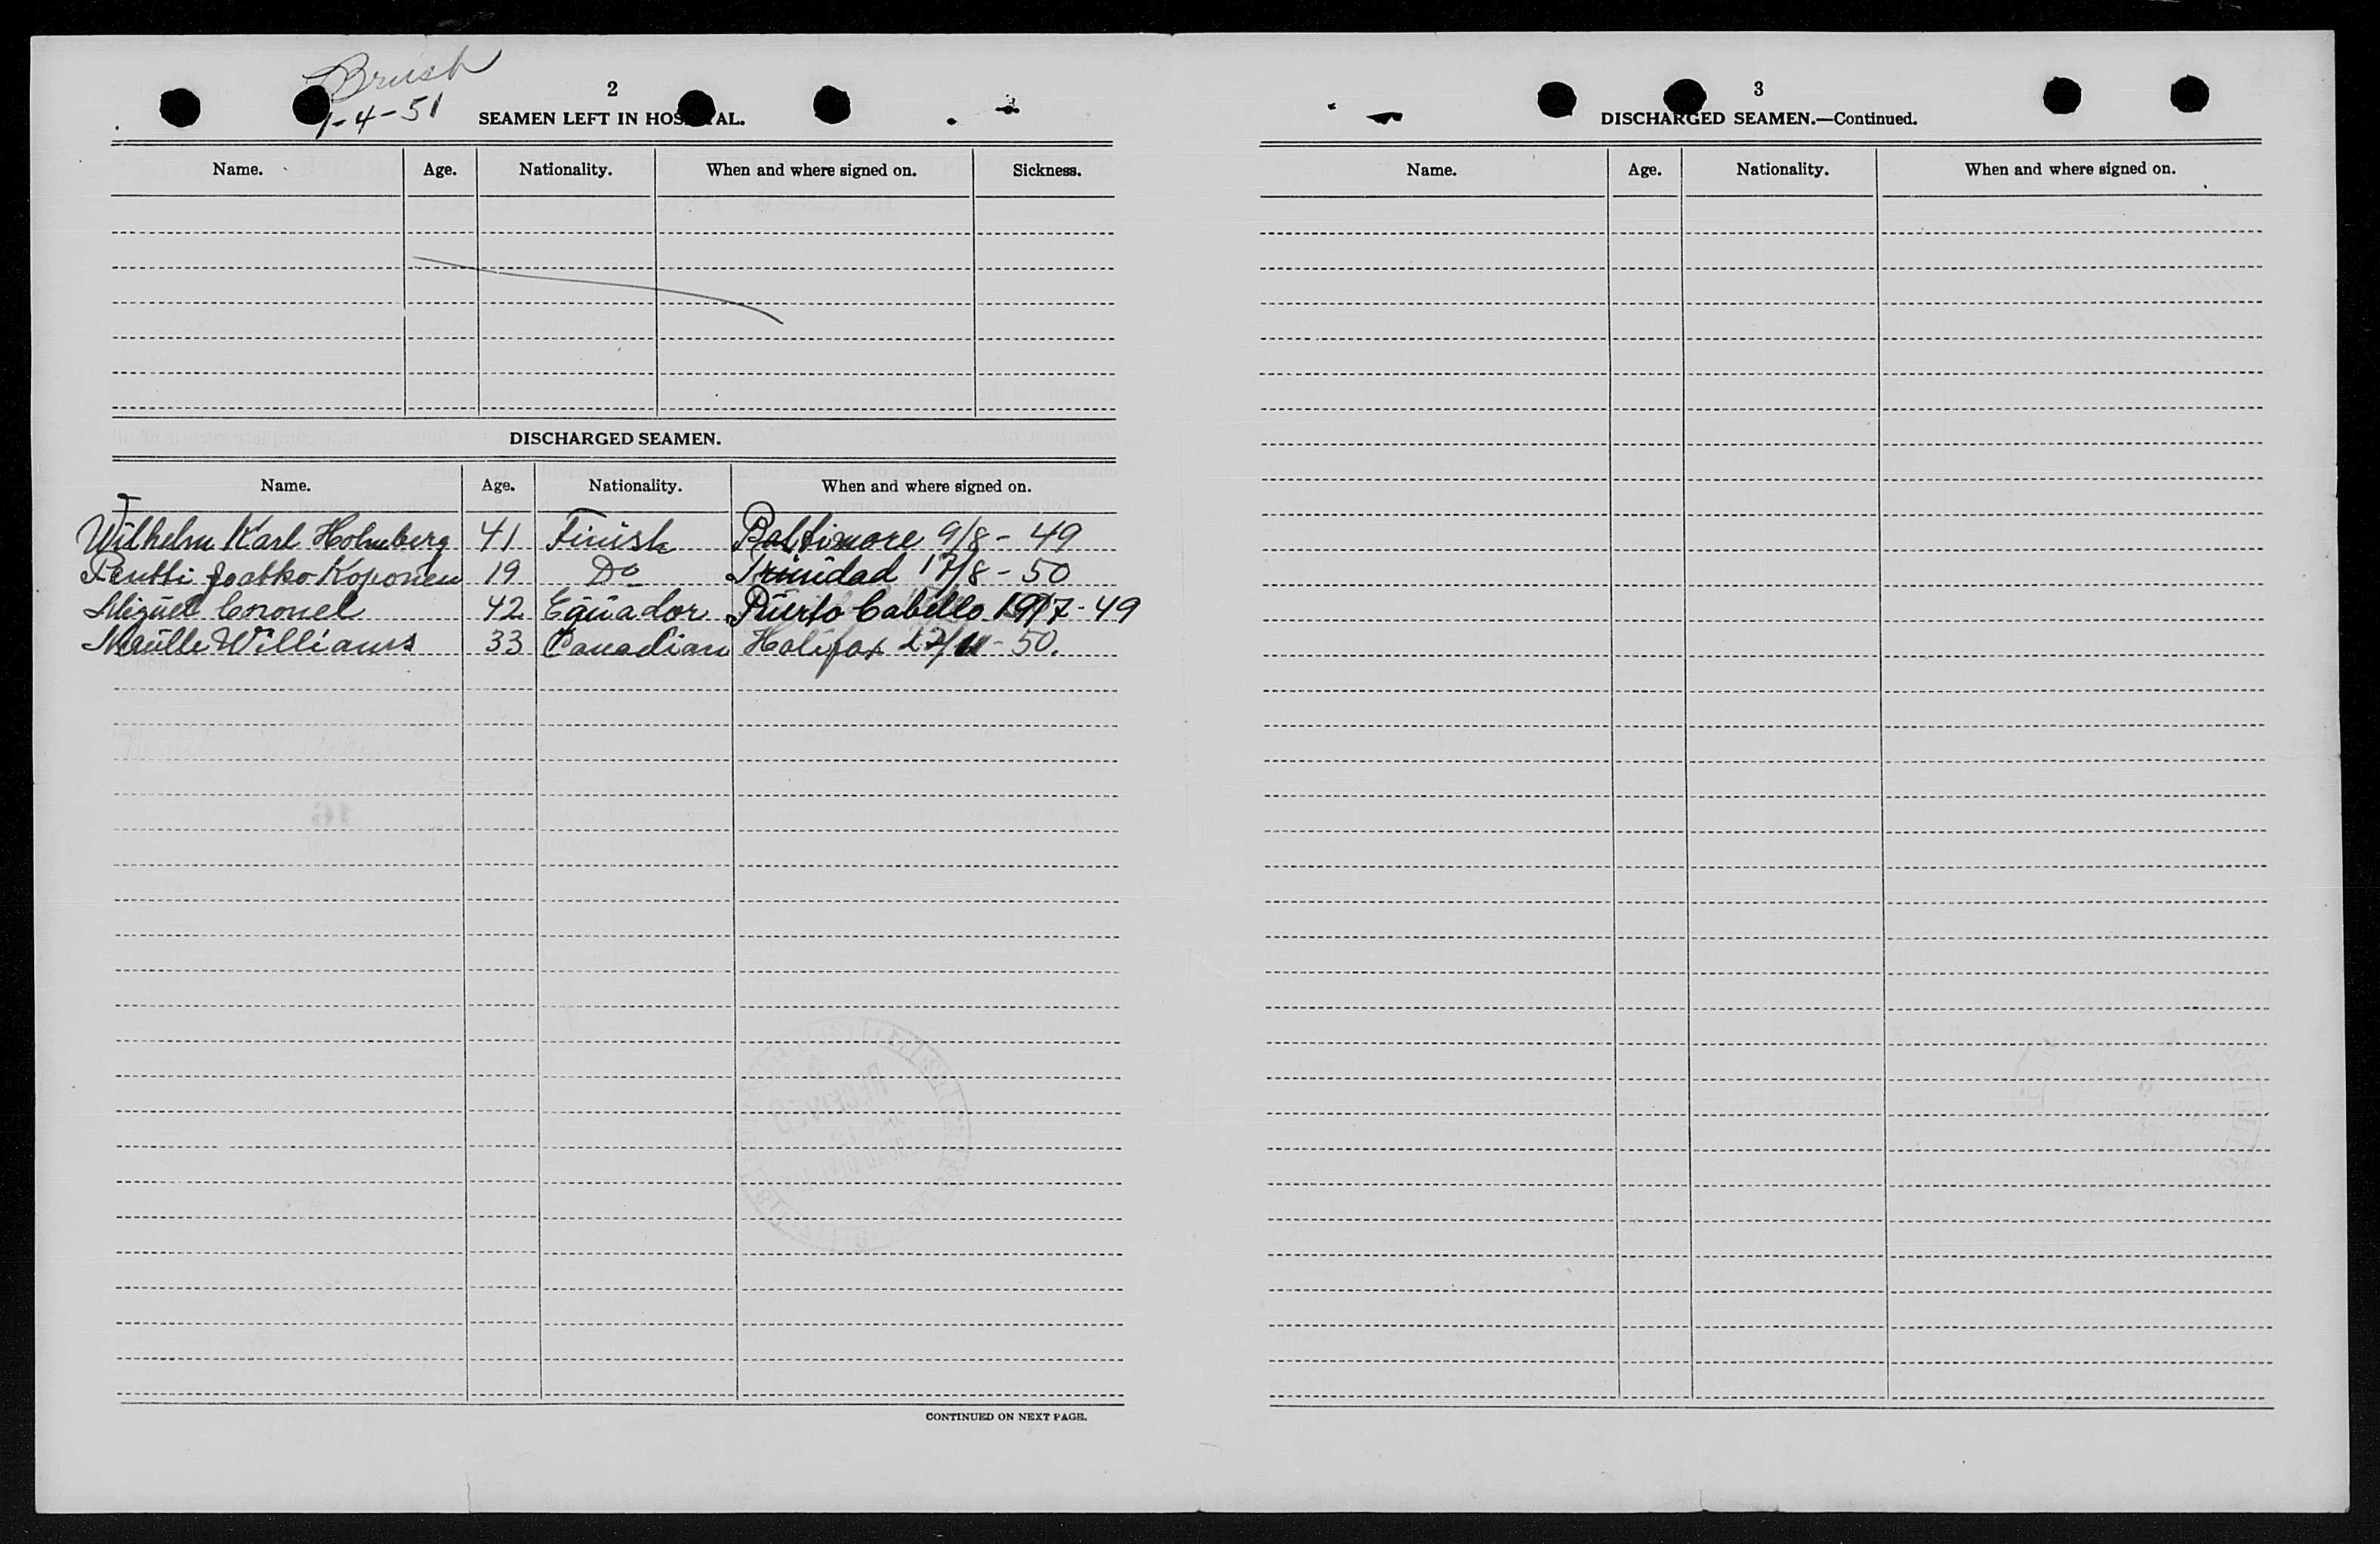 Brush
1-4-51
2
SEAMEN LEFT IN HOSPITAL.
Name. Age. Nationality. When and where signed on. Sickness.
DISCHARGED SEAMEN.
Name. Age. Nationality. When and where signed on.
Wilhelm Karl Holmberg 41 Finish Baltimore 9/8 - 49
Pentti Jaakko Koponen 19 Do Trinidad 17/8 - 50
Miguel Coronel 42 Equador Puerto Cabello 19/7 - 49
Williams 33 Canadian Halifax - 50.
CONTINUED ON NEXT PAGE.
3
DISCHARGED SEAMEN.—Continued.
Name. Age. Nationality. When and where signed on.